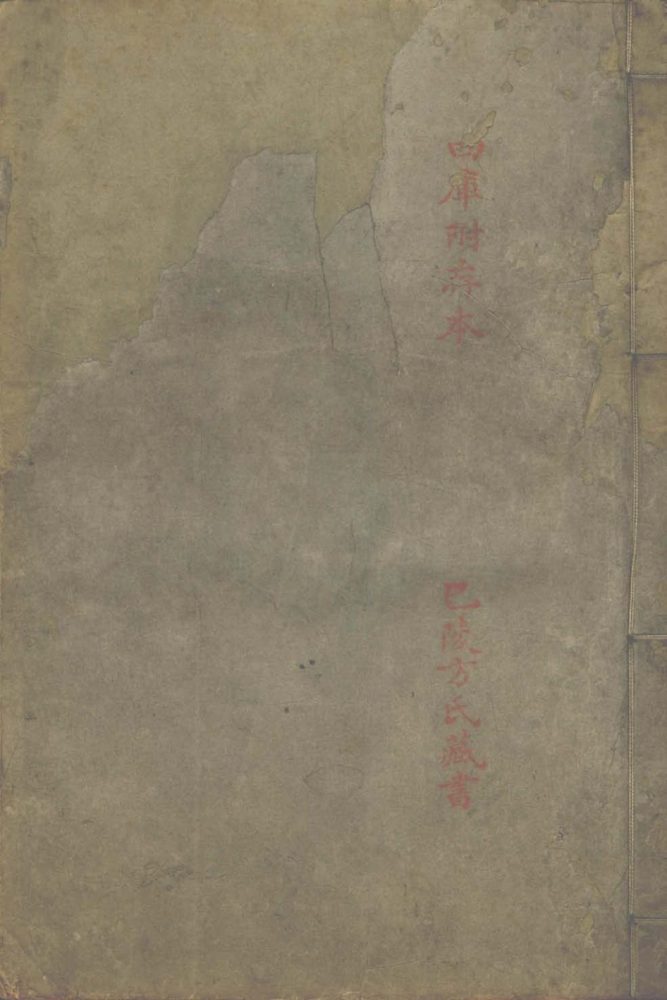 四庫附存本
巴陵方氏藏書